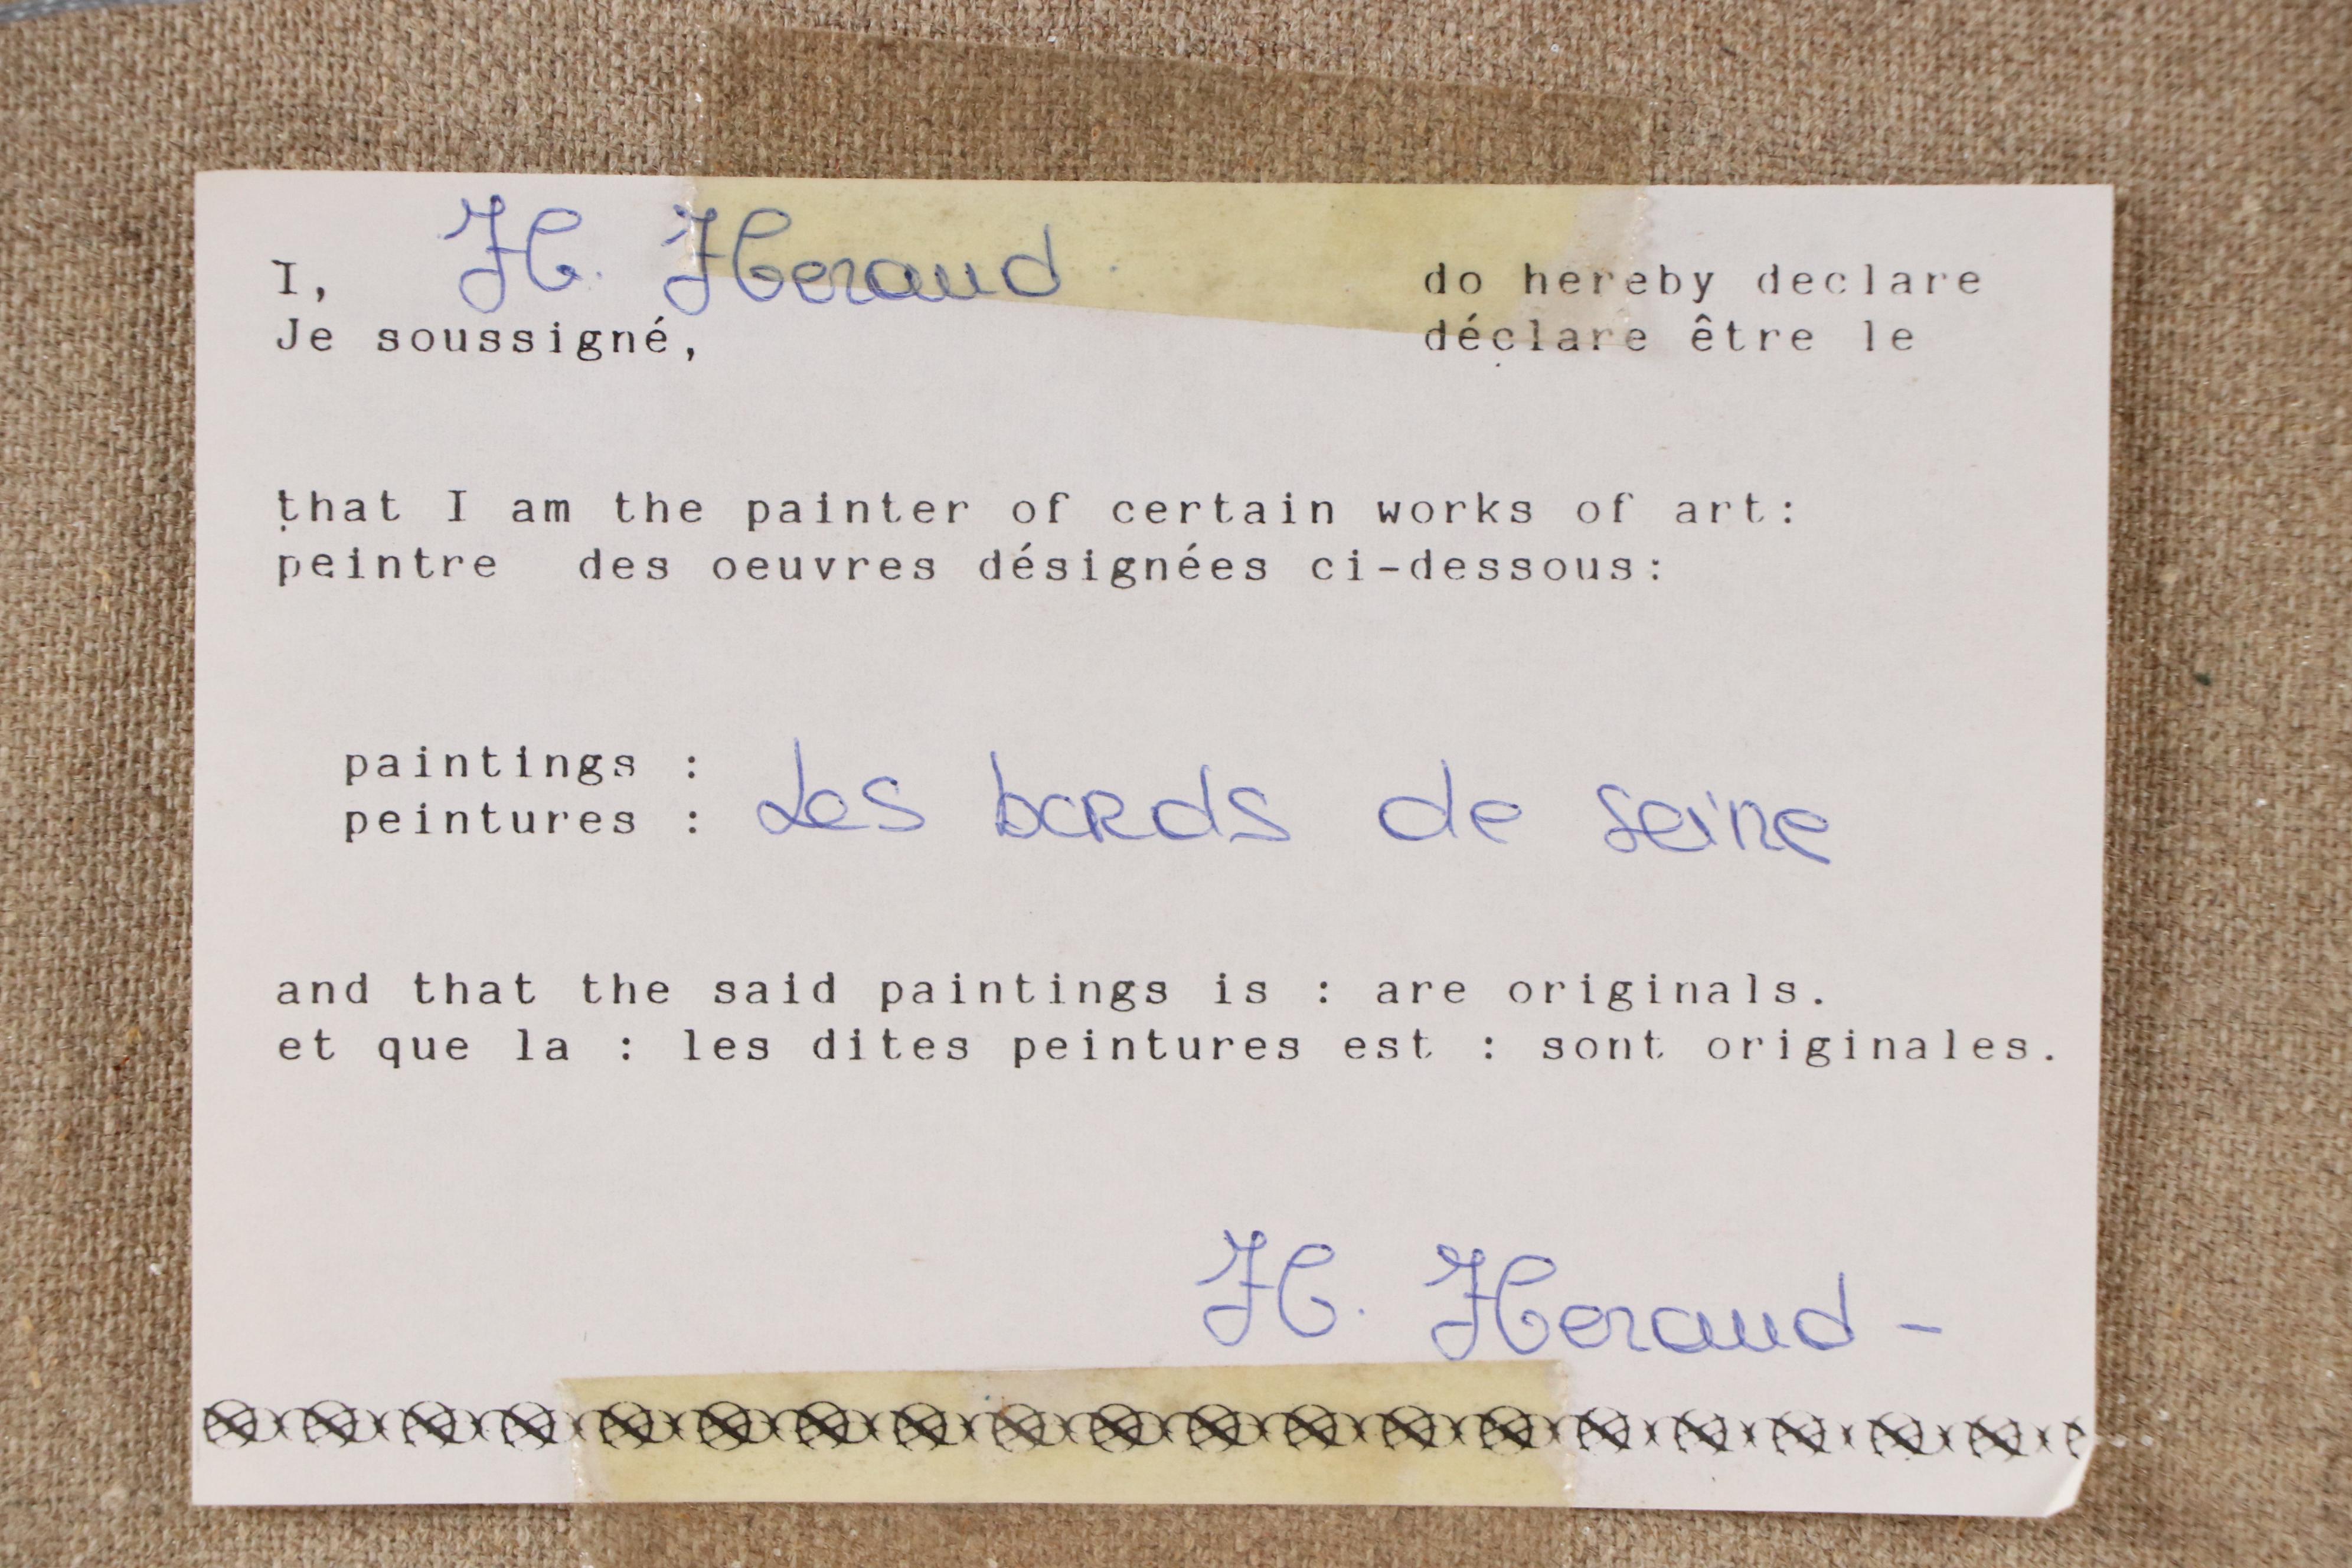 I, H. Heraud do hereby declare
Je soussigné, déclare être le
that I am the painter of certain works of art:
peintre des oeuvres désignées ci-dessous:
paintings :
peintures : Les bords de seine
and that the said paintings is : are originals.
et que la : les dites peintures est : sont originales.
H. Heraud -